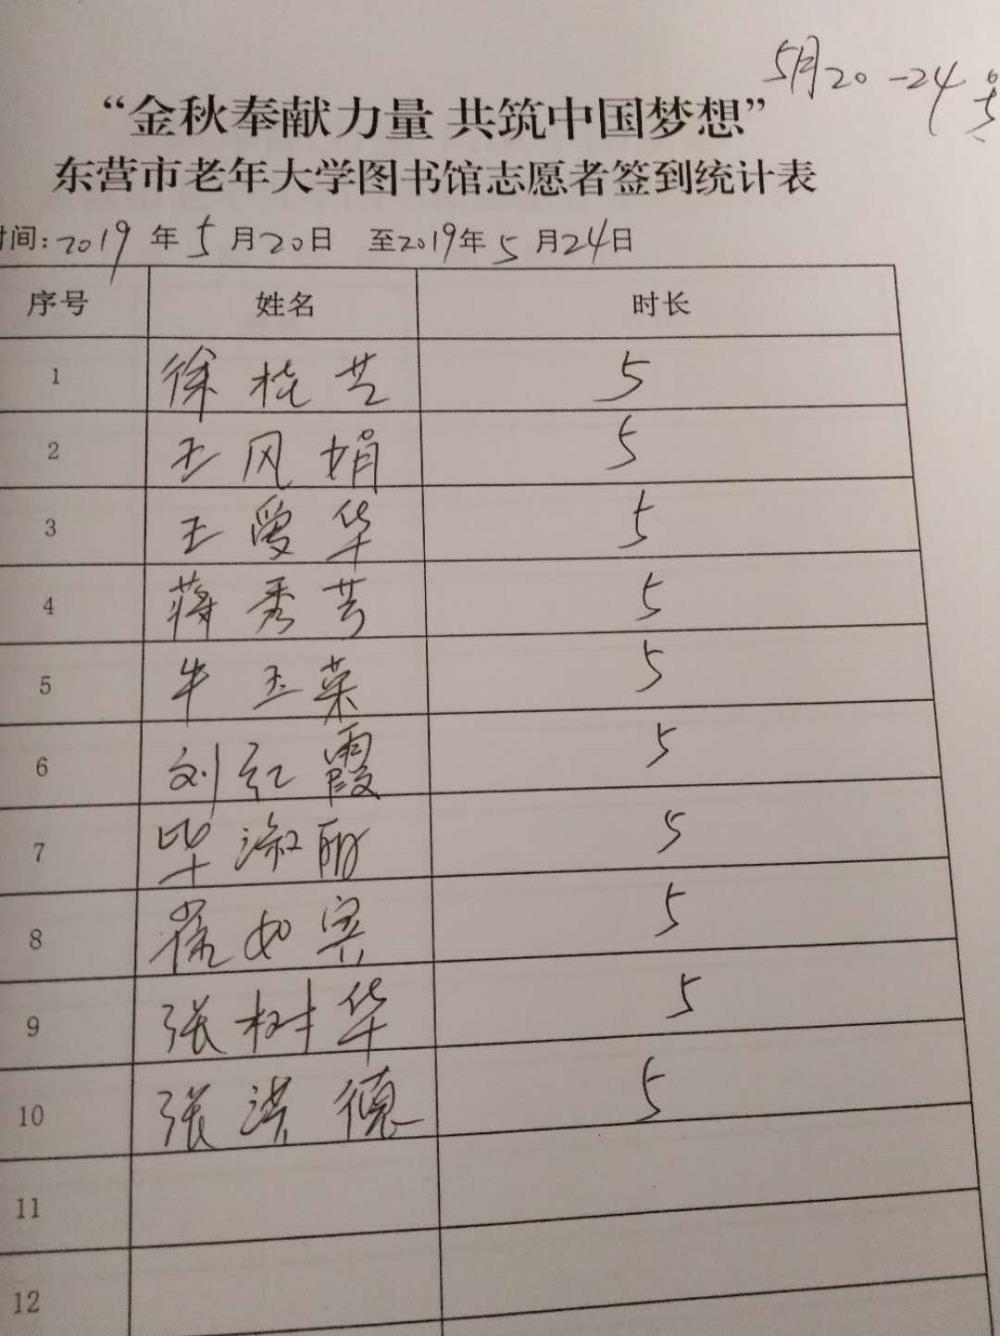 5月20-24号
“金秋奉献力量 共筑中国梦想”
东营市老年大学图书馆志愿者签到统计表
时间:2019年5月20日 至2019年5月24日
序号 姓名 时长
1 徐桂芝 5
2 王风娟 5
3 王爱华 5
4 蒋秀芳 5
5 牛玉菜 5
6 刘红霞 5
7 毕淑丽 5
8 如 5
9 张树华 5
10 张洪德 5
11
12